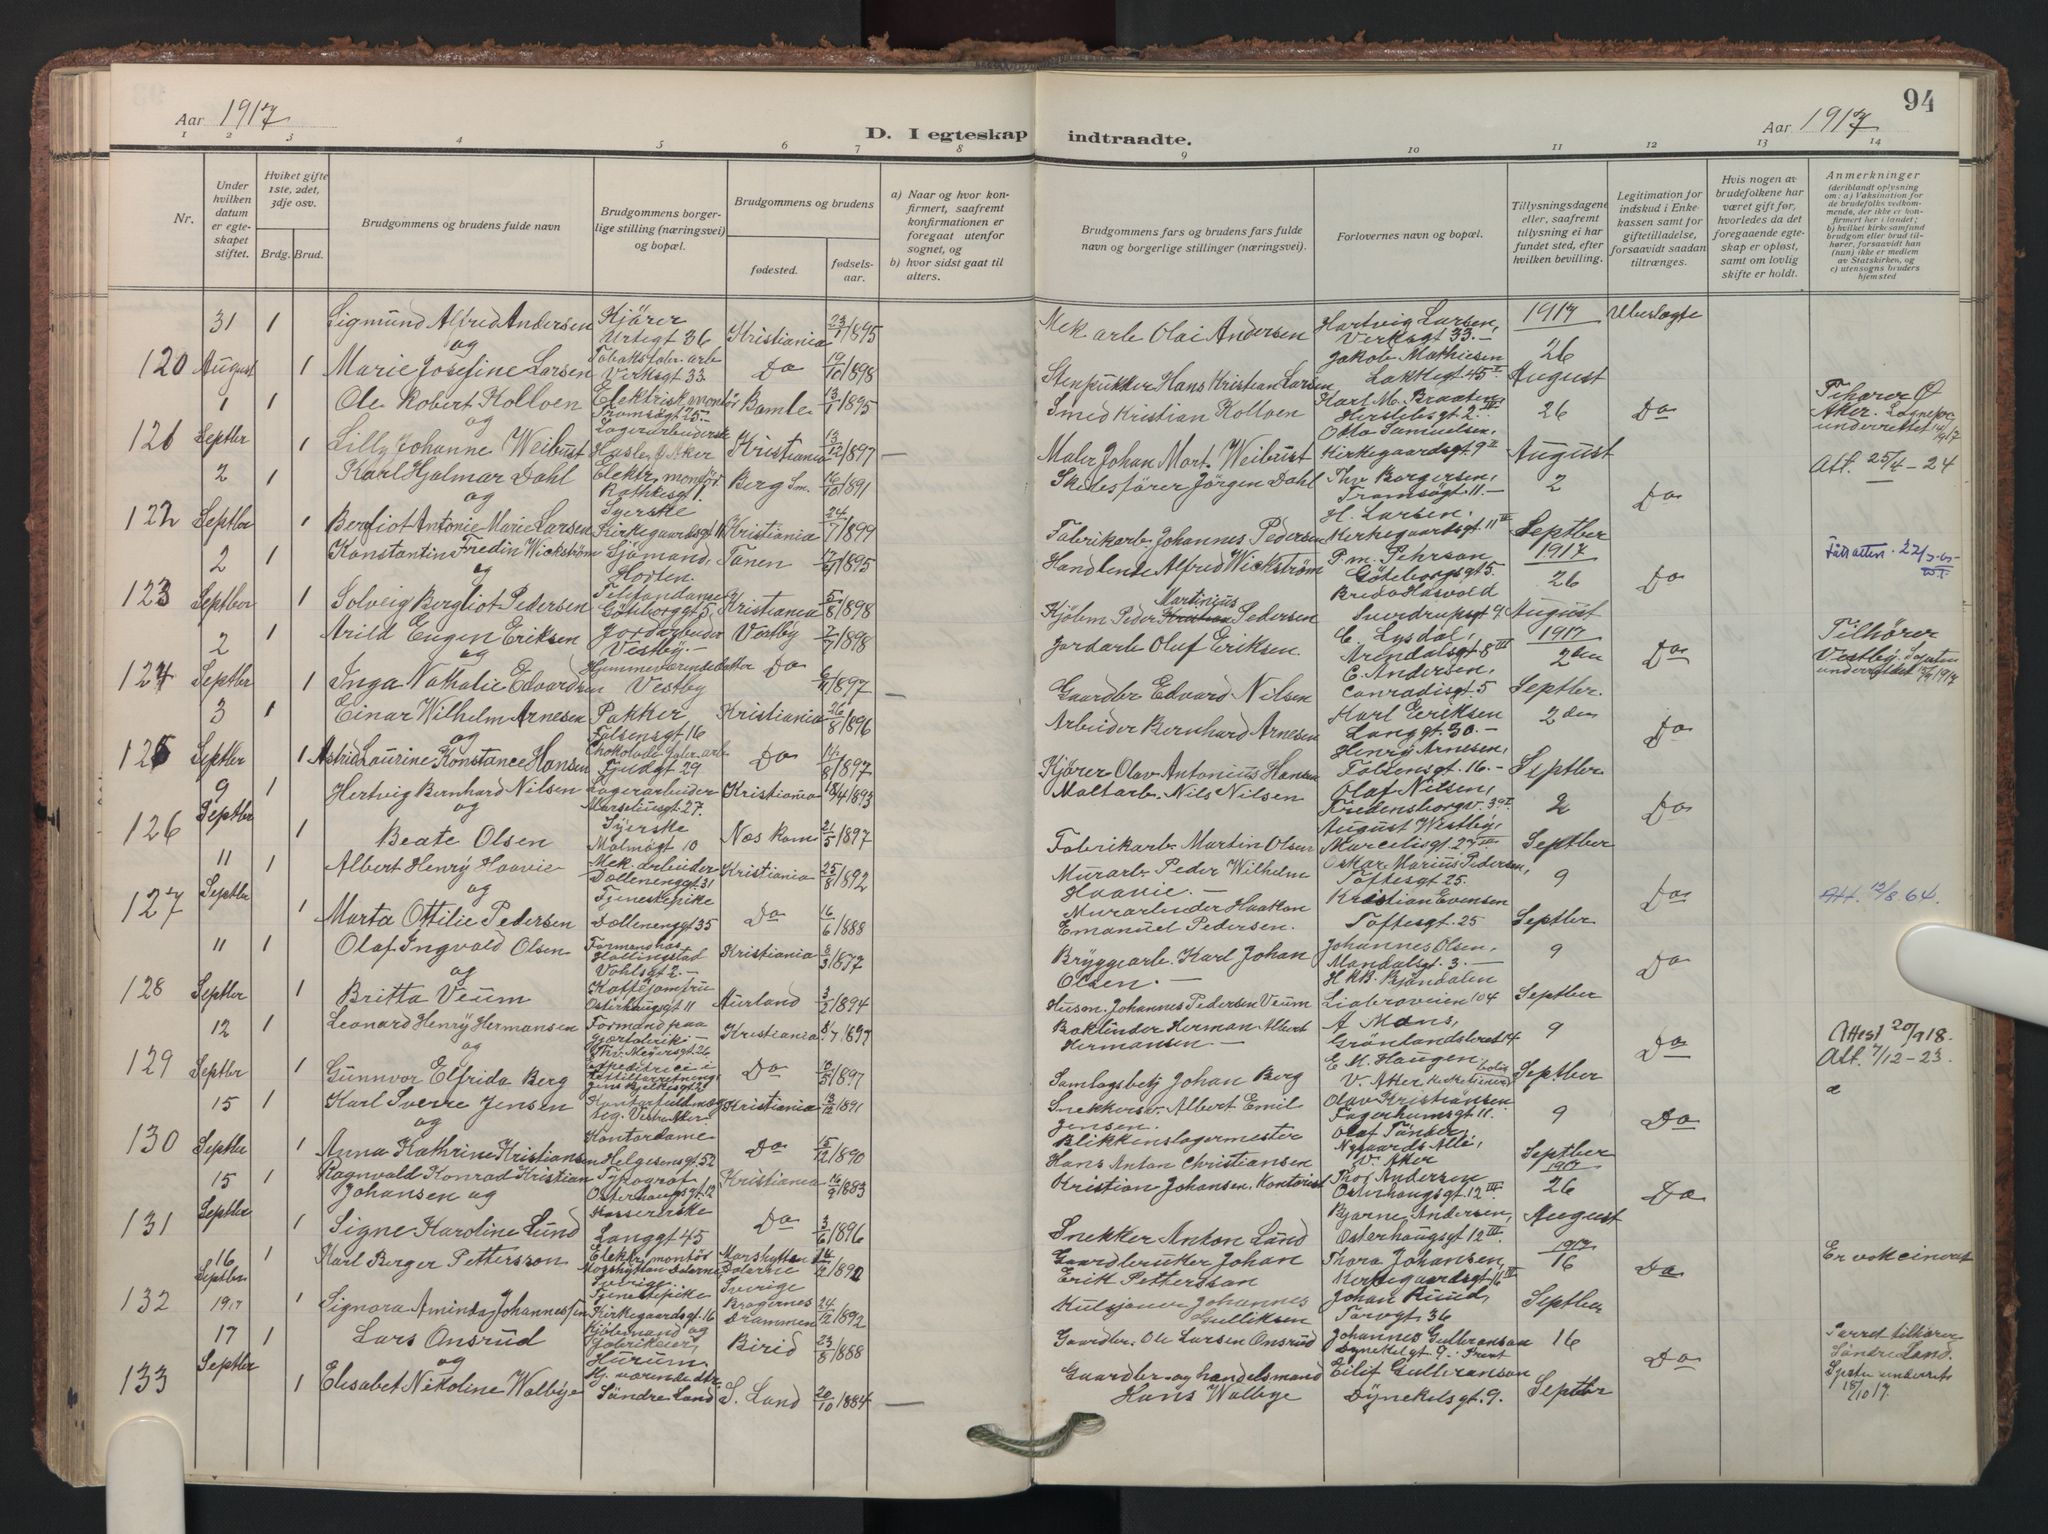 94
Aar 1917
D. I egteskap indtraadte.
Aar 1917
1 2 3 4 5 6 7 8 9 10 11 12 13 14
Nr.
Under hvilken datum er egteskapet stiftet.
Hviket gifte 1ste, 2det, 3dje osv.
Brdg. Brud.
Brudgommens og brudens fulde navn
Brudgommens borgerlige stilling (næringsvei) og bopæl.
Brudgommens og brudens
fødested.
fødselsaar.
a) Naar og hvor konfirmert, saafremt konfirmationen er foregaat utenfor sognet, og
b) hvor sidst gaat til alters.
Brudgommens fars og brudens fars fulde navn og borgerlige stillinger (næringsvei).
Forlovernes navn og bopæl.
Tillysningsdagene eller, saafremt tillysning ei har fundet sted, efter hvilken bevilling.
Legitimation for indskud i Enkekassen samt for giftetilladelse, forsaavidt saadan tiltrænges.
Hvis nogen av brudefolkene har været gift før, hvorledes da det foregaaende egteskap er opløst, samt om lovlig skifte er holdt.
Anmerkninger
(deriblandt oplysning om: a) Vaksination for de brudefolks vedkommende, der ikke er konfirmert her i landet; b) hvilket kirkesamfund brudgom eller brud tilhører, forsaavidt han (hun) ikke er medlem av Statskirken, og c) utensogns bruders hjemsted
120 31 August 1 1
Sigmund Alfred Andersen og
Marie Josefine Larsen
Kjörer Urtegt 36
Tobaksfabr. arb Verksgt 33
Kristiania 23/1 1895
Do 19/10 1898
Mek arb Olai Andersen
Stenpukker Hans Kristian Larsen
Hartvig Larsen, Verksgt 33.-
Jakob Mathiesen Lakkegt 45 II
1917 26 August
Ubeslegte
121 1 Septbr 1 1
Ole Robert Kolloen og
Lilly Johanne Weibust
Elektrisk montör Tromsögt 25
Lagerarbeiderske Hasle Ø Aker
Bamle 13/1 1895
Kristiania 13/12 1897 —
Smed Kristian Kolloen
Maler Johan Mart. Weibust
Karl M. Braaten, Herslebsgt 2 IV
Otto Samuelsen, Kirkegaardsgt 9 II
26 August
Do
Tihører Ø Aker. Sognepr. underrettet
122 2 Septbr 1 1
Karl Hjalmar Dahl og
Bergliot Antonie Marie Larsen
Elektr. montör Rathkesgt 1.
Syerske Kirkegaardsgt 11
Berg Sm. 16/10 1891
Kristiania 24/7 1899
Skibsförer Jörgen Dahl
Fabrikarb. Johannes Pedersen
Thv Borgersen, Tromsögt. 11.-
H. Larsen, Kirkegaardsgt 11 IV
2 Septbr
Do
Att. 25/4 - 24
123 2 Septbr 1 1
Konstantin Fredin Wickström og
Solveig Bergliot Pedersen
Sjömand, Horten.
Telefondame Göteborggt 5
Tanen 17/9 1895
Kristiania 5/8 1898
Handlende Alfred Wickström
Kjöbm Peder Martinius Pedersen
P.m. Pehrson Göteborgsgt 5.
Bredo Hasvold Sverdrupsgt 9
1917 26 August
Do
124 2 Septbr 1 1
Arild Eugen Eriksen og
Inga Nathalie Edvardsen
Jordarbeider Vestby.-
Hjemmeværende datter Vestby
Vestby 7/7 1898
Do 6/11 1897 —
Jordarb Oluf Eriksen.
Gaardbr Edvard Nilsen
C. Lysdal, Arendalsgt 8 III
E. Andersen, Conradisgt. 5
1917 2den Septbr.
Do
Tilhörer Vestby. Sogsten underrettet
125 3 Septbr 1 1
Einar Wilhelm Arnesen og
Astrid Laurine Konstance Hansen
Pakker Falsensgt 16
Chokoladefabr. arb Tjudgt 29
Kristiania 26/8 1896
Do 14/8 1897
Arbeider Bernhard Arnesen
Kjörer Olav Antonius Hansen
Karl Eriksen Langgt 30.-
Henry Arnesen, Falsensgt. 16.-
2den Septbr
Do
126 9 Septbr 1 1
Hertvig Bernhard Nilsen og
Beate Olsen
Lagerarbeider Marseliusgt. 27.
Syerske Malmögt 10
Kristiania 18/4 1893
Næs Rom 21/5 1897
Maltarb. Nils Nilsen
Fabrikarb. Martin Olsen
Olaf Nilsen, Fredensborgv. 39 I
August Westby, Marcelisgt. 27 III
2 Septbr
Do
127 11 Septbr 1 1
Albert Henry Haavie og
Marta Ottilie Pedersen
Mek. arbeider Dællenenggt 31
Tjeneskepike Dællenenggt 35
Kristiania 25/8 1892
Do 16/6 1888
Murarb. Peder Wilhelm Haavie.-
Murarbeider Haakon Emanuel Pedersen.
Oskar Marius Pedersen, Toftesgt 25.
Kristian Evensen Toftesgt. 25
9 Septbr
Do
Att. 12/8. 64.
128 11 Septbr 1 1
Olaf Ingvald Olsen og
Britta Veum
Formand hos Hallingstad Vahlsgt 2.-
Kaffejomfru Osterhausgt 11
Kristiania 3/3 1877
Aurland 3/2 1894
Bryggearb. Karl Johan Olsen.-
Husm. Johannes Pedersen Veum
Johannes Olsen, Mandalsgt. 3.-
H.M.B. Bjöndalen Liabroveien 104
9 Septbr
Do
129 12 Septbr 1 1
Leonard Henry Hermansen og
Gunnvor Elfrida Berg
Formand paa gjærfabrik- Thv. Meyersgt. 26
Kristiania 8/7 1897
Do 1897
Bokbinder Herman Albert Hermansen -
Samlagsbetj Johan Berg
A Mons, Grönlandsleret 14
E. M. Haugen, V. Aker
9 Septbr
Do
Attest 20/9 18.
Att. 7/12 - 23.
130 15 Septbr 1 1
Karl Sverre Jensen og
Anna Kathrine Kristiansen
Kontordame Helgesensgt. 52
Kristiania 13/12 1891
Do 15/12 1890
Snekkersv. Albert Emil Jensen.
Blikkenslagermester Hans Anton Christiansen
Olav Kristiansen Fagerheimsgt 11.
Olaf Tönder, Nygaards Allé, V. Aker
9 Septbr
Do
131 15 Septbr 1 1
Ragnvald Konrad Kristian Johansen og
Signe Karoline Lund
Typograf Osterhausgt 12
Kassererske Langgt 45
Kristiania 16/9 1883
Do 3/6 1896
Kristian Johansen, Kontorist
Snekker Anton Lund
Thor Andersen Osterhausgt 12 III
Bjarne Andersen, Osterhausgt 12 III
1917 26 August
Do
132 16 Septbr 1917 1 1
Karl Berger Pettersson
Signora Aminda Johannessen
Elektr. montör Morshyttan Dalerne Sverige
Tjenestepike Kirkegaardsgt. 16
Morshyttan Dalerne Sverige 14/2 1892
Bragernes Drammen 24/12 1892
Gaardbruker Johan Erik Pettersson
Kulsjouer Johannes Gulliksen
Thora Johansen, Kirkegaardsgt 16 IV
Johan Ruud, Torvgt 36
1917 16 Septbr
Do
Er vokcineret
133 17 Septbr 1 1
Lars Onsrud og
Elisabet Nikoline Walbye
Kjöbmand og fabrikeier, Hurum.
Hj. værende dtr. Söndre Land
Birid 23/8 1888
S. Land 20/10 1884 —
Gaardbr. Ole Larsen Onsrud
Gaardbr og handelsmand Hans Walbye
Johannes Gulbranson Dynekilgt. 9.
Eilif Gulbranson Dynekilsgt. 9.
16 Septbr
Do
Parret tilhører Söndre Land.
18/10 17.